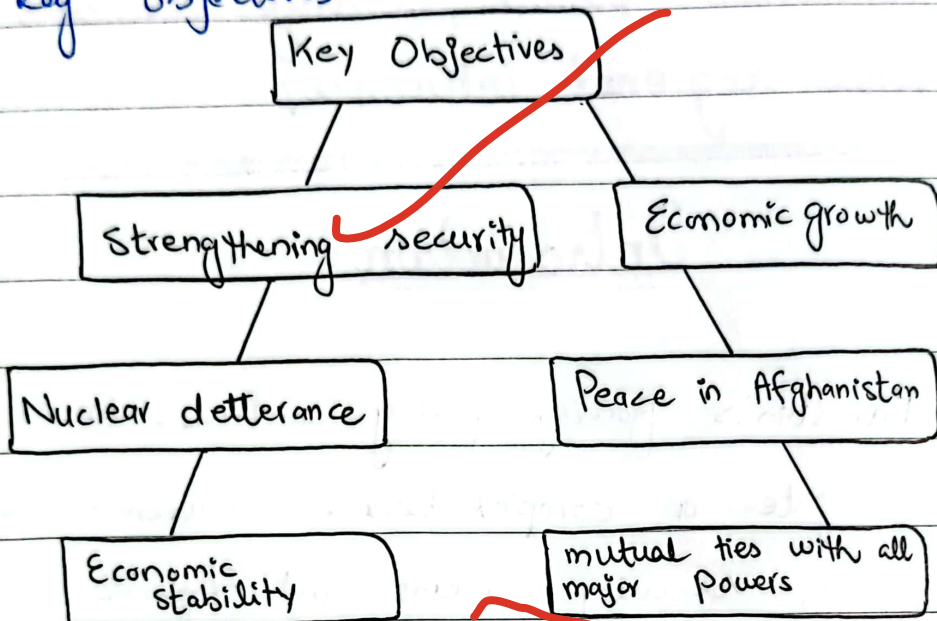 Key Objectives
Key Objectives
Strengthening security
Economic growth
Nuclear detterance
Peace in Afghanistan
Economic
stability
mutual ties with all
major Powers